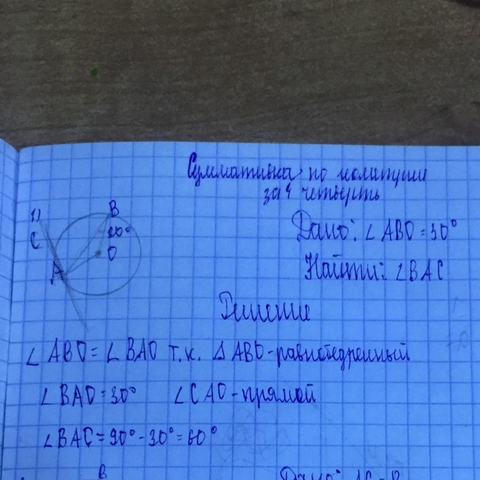 Суммативка по геометрии
за 4 четверть
1)
B
C
30°
O
A
Дано: ∠ABO = 30°
Найти: ∠BAC
Решение
∠ABO = ∠BAO т.к. △ABO - равнобедренный
∠BAO = 30° ∠CAO - прямой
∠BAC = 90° - 30° = 60°
B
Дано: